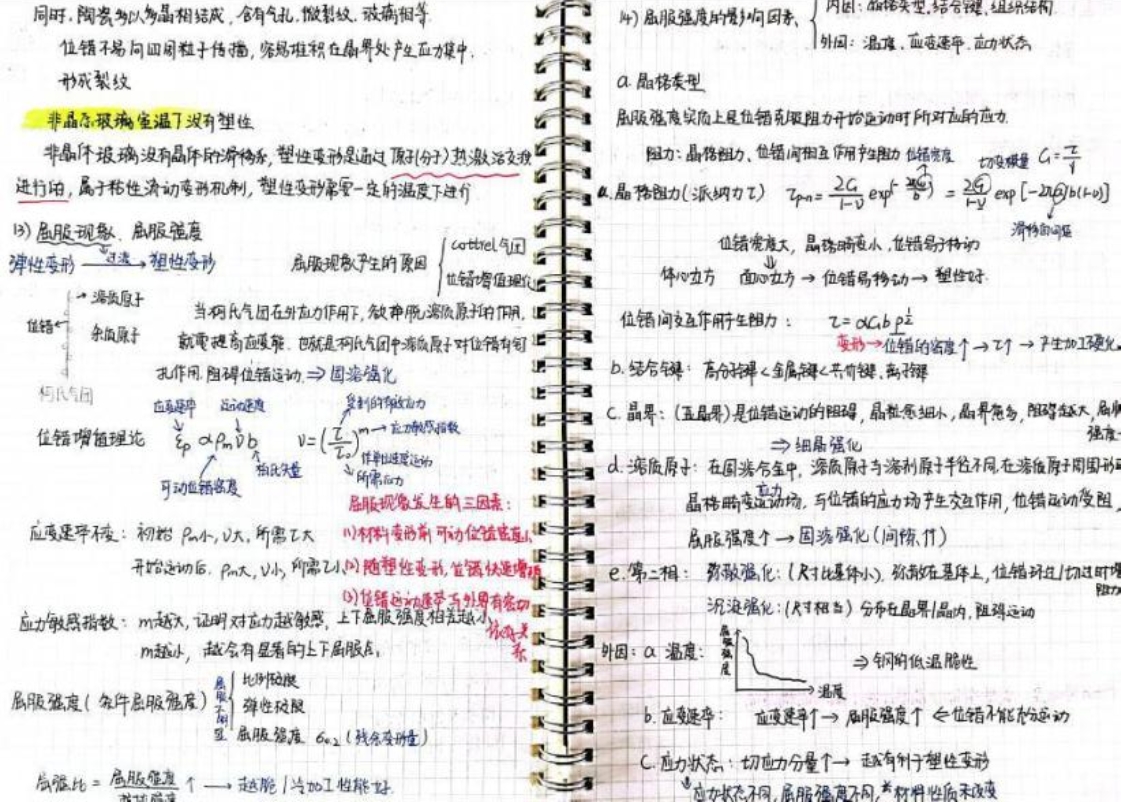 同时,陶瓷多以多晶相结成,含有气孔、微裂纹、玻璃相等.
位错不易向四周粒子传播,容易堆积在晶界处产生应力集中.
形成裂纹
非晶态玻璃室温下没有塑性
非晶体玻璃没有晶体的滑移系,塑性变形是通过原子(分子)热激活交换
进行的,属于粘性流动变形机制,塑性变形需要一定的温度下进行
13) 屈服现象、屈服强度
弹性变形 —过渡→ 塑性变形
屈服现象产生的原因 { cottrel气团
位错增值理论
位错
溶质原子
杂质原子
柯氏气团
当柯氏气团在外应力作用下,欲挣脱溶质原子的作用,
就要提高应变能.也就是柯氏气团中溶质原子对位错有钉
扎作用,阻碍位错运动.⇒固溶强化
应变速率 运动速度
受到的有效应力
位错增值理论 ε̇p ∝ ρm ν b
ν=(τ/τ₀)^m → 应力敏感指数
柏氏矢量
作单位速度运动
所需应力
可动位错密度
屈服现象发生的三因素:
(1)材料变形前可动位错密度小
(2)随塑性变形,位错快速增殖
(3)位错运动速率与外界有密切
依存关系
应变速率不变: 初始 ρm小,ν大,所需τ大
开始运动后,ρm大,ν小,所需τ小
应力敏感指数: m越大,证明对应力越敏感,上下屈服强度相差越小
m越小,越会有显著的上下屈服点.
屈服强度(条件屈服强度)
比例极限
弹性极限
屈服强度 σ0.2(残余变形量)
屈强比 = 屈服强度/抗拉强度 ↑ → 越脆|冷加工性能好.
14) 屈服强度的影响因素 { 内因: 晶格类型,结合键,组织结构
外因: 温度、应变速率、应力状态
a.晶格类型
屈服强度实质上是位错克服阻力开始运动时所对应的应力.
阻力:晶格阻力、位错间相互作用产生阻力 位错宽度 切变模量 G=τ/γ
a.晶格阻力(派纳力τ) τp-n = 2G/(1-ν) exp(-2πω/b) = 2G/(1-ν) exp[-2πa/b(1-ν)]
滑移面间距
位错宽度大,晶格畸变小,位错易于移动
体心立方 面心立方→位错易移动→塑性好.
位错间交互作用产生阻力: τ=αGbρ^½
变形→位错的密度↑→τ↑→产生加工硬化
b.结合键: 高分子键<金属键<共价键、离子键
c.晶界:(五晶界)是位错运动的阻碍,晶粒愈细小,晶界愈多,阻碍越大,屈服
强度
⇒细晶强化
d.溶质原子: 在固溶合金中,溶质原子与溶剂原子半径不同,在溶质原子周围形成
晶格畸变应力场.与位错的应力场产生交互作用,位错运动受阻,
屈服强度↑→固溶强化(间隙,↑↑)
e.第二相: 弥散强化:(尺寸比基体小).弥散在基体上,位错绕过/切过时增
阻力
沉淀强化:(尺寸相当) 分布在晶界|晶内,阻碍运动
外因: a.温度:
屈服强度
温度
⇒钢的低温脆性
b.应变速率: 应变速率↑→屈服强度↑ ⇐位错不能充分运动
c.应力状态: 切应力分量↑→越有利于塑性变形
应力状态不同,屈服强度不同,*材料性质不改变